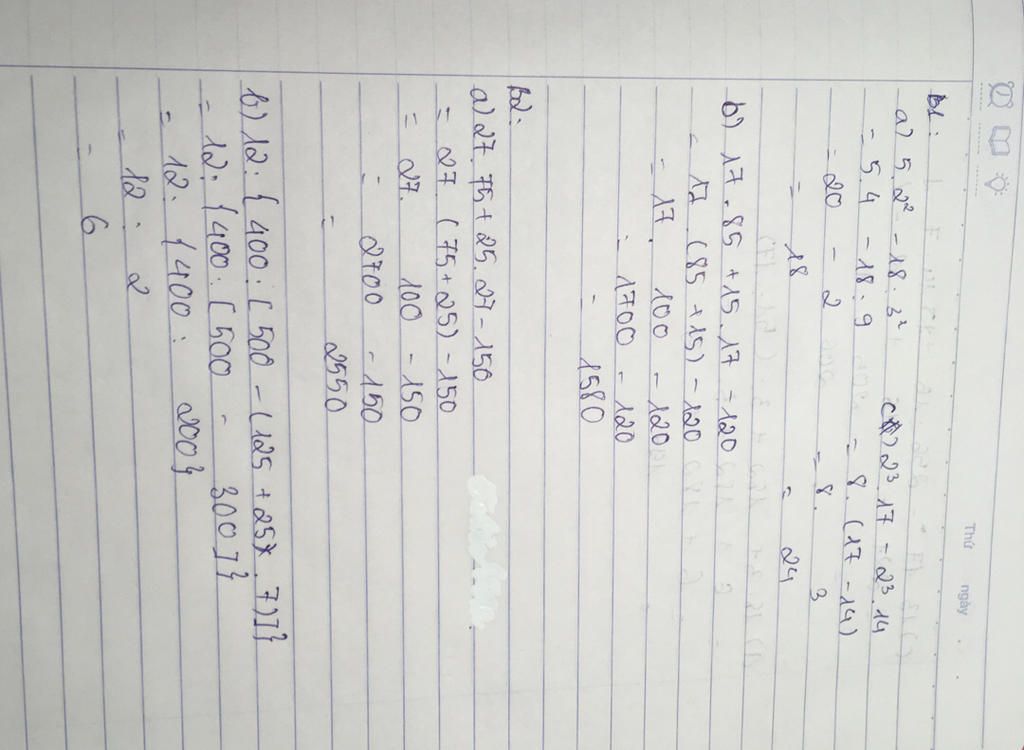 Thứ ngày
B1:
a) 5.2² - 18:3²
= 5.4 - 18:9
= 20 - 2
= 18
c) 2³.17 - 2³.14
= 8.(17 - 14)
= 8. 3
= 24
b) 17.85 + 15.17 - 120
= 17.(85 + 15) - 120
= 17. 100 - 120
= 1700 - 120
= 1580
B2:
a) 27.75 + 25.27 - 150
= 27.(75 + 25) - 150
= 27. 100 - 150
= 2700 - 150
= 2550
b) 12:{400:[500 - (125 + 25.7)]}
= 12:{400:[500 - 300]}
= 12:{400: 200}
= 12: 2
= 6